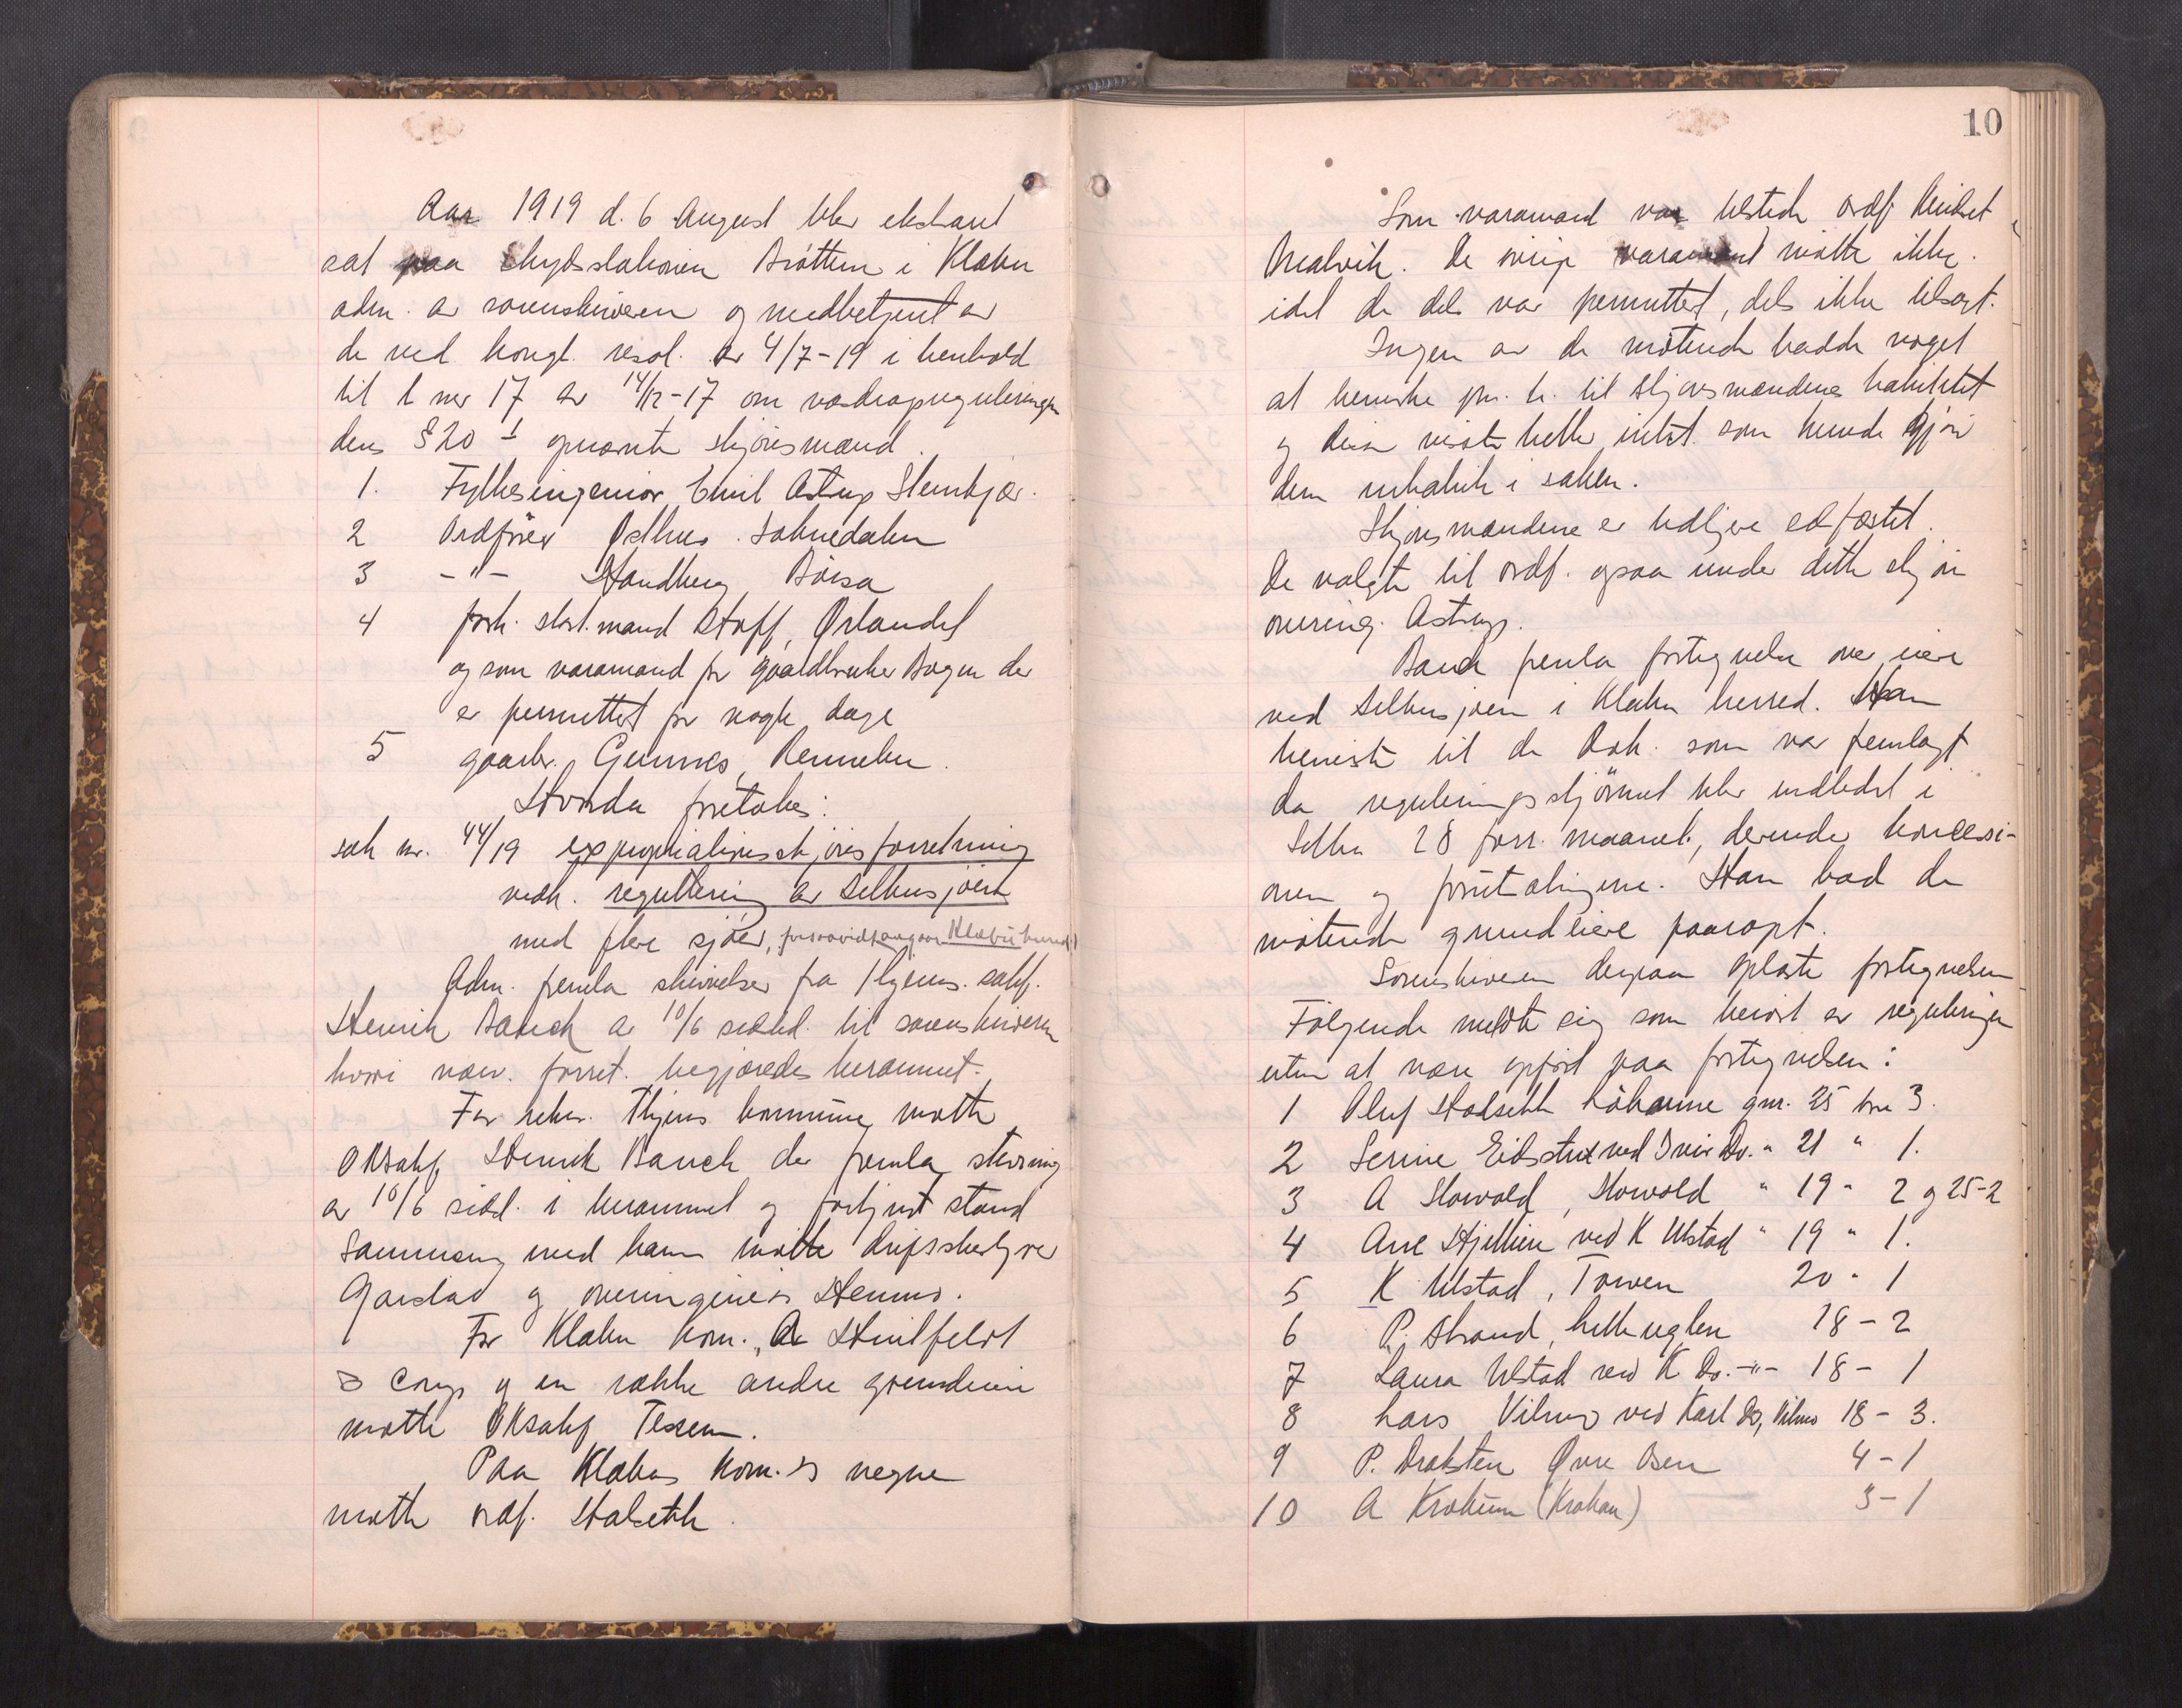 Aar 1919 d. 6 August blev ekstraret
sat paa Skydsstationen Bröttem i Klæbu
adm. av sorenskriveren og medbetjent av
de ved kongl. resol. av 4/7-19 i henhold
til l nr 17 av 14/12-17 om vasdragsreguleringen
dens § 20 1 opnævnte skjönsmænd.
1. Fylkesingeniör Emil Astrup Stenkjær.
2 Ordförer Østhus. Soknedalen
3 -"- Strandberg Börsa
4 forh. slort. mand Hoff, Ørlandet
og som varamand for gaardbruker Bogen der
er permittert for nogle dage
5 gaardbr. Gunnes, Rennebu.
Hvorda foretokes:
sak nr. 44/19 expropriationsskjönsforretning
vedk. regulering av Selbusjöen
med flere sjöer, forsaavidt angaar Klæbu herred
Adm. fremla skrivelse fra Thjems. sakf.
Henrik Bauck av 10/6 sidstl. til sorenskriveren
hvori nærv. forret. begjæredes berammet.
For rekv. Thjems kommune mötte
ORsakf Henrik Bauck der fremla stevning
av 10/6 sidstl. i berammet og forkyndt stand
Sammen med ham mötte driftsbestyrer
Gaarstad og overingeniör Hennum.
For Klæbu kom., A Huitfeldt
& Comp og en række andre grundeiere
mötte ORsakf Tessem.
Paa Klæbu kom.s vegne
mötte ordf. Halseth.
10
Som varamand var tilstede ordf. Kviset
Malvik. De övrige varamænd mötte ikke.
idet de dels var permittert, dels ikke tilsagt.
Ingen av de mötende hadde noget
at bemerke m. h. til skjönsmændenes habilitet
og disse visste heller intet som kunde gjöre
dem inhabile i saken.
Skjönsmændene er tidligere edfæstet.
De valgte til ordf. ogsaa under dette skjön
overing. Astrup.
Bauck fremla fortegnelse over eiere
ved Selbusjöen i Klæbu herred. Han
henviste til de dok. som var fremlagt
da reguleringsskjönnet blev indledet i
Selbu 28 forr. maaned, derunder koncessi-
onen og forutsætningene. Han bad de
mötende grundeiere paaropt.
Sorenskriveren derpaa oplæste fortegnelsen
Fölgende meldte sig som berört av reguleringen
uten at være opfört paa fortegnelsen:
1 Oluf Halseth Lökanne gnr. 25 bnr 3.
2 Serine Eidstu ved Iver Do. " 21 " 1.
3 A Horvold, Horvold " 19 " 2 og 25-2
4 Ane Stjellien ved K Ulstad " 19 " 1.
5 K Ulstad, Torven 20 " 1
6 P. Strand, lille uglen 18 - 2
7 Laura Ulstad ved K Do. -"- 18 - 1
8 Lars Vilmo ved Karl Do, Vilmo 18 - 3.
9 P. Draksten Øvre Osen 4 - 1
10 A Krokum (Krokan) 3 - 1